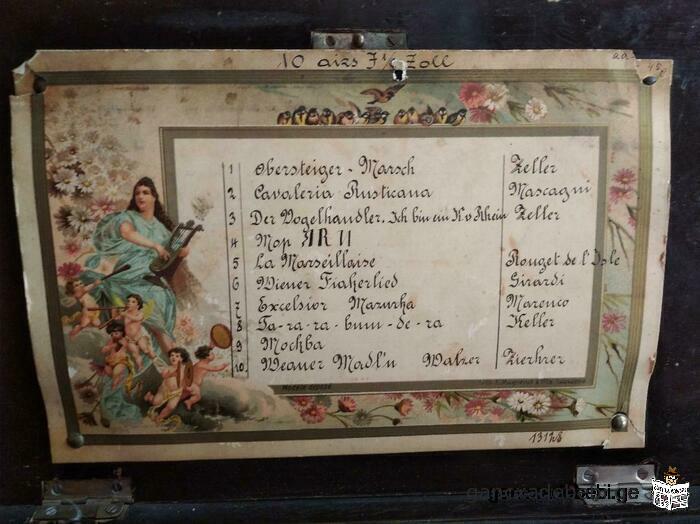 10 airs
Zoll
1 Obersteiger - Marsch Zeller
2 Cavaleria Rusticana Mascagni
3 Der Vogelhandler, Ich bin ein Rhein Zeller
4 Mop
5 La Marseillaise Rouget de l'Isle
6 Wiener Fiakerlied Girardi
7 Excelsior Mazurka Marenco
8 Ta-ra-ra-bum-de-ra Keller
9 Mockba
10. Weaner Madl'n Walzer Zierhrer
13128